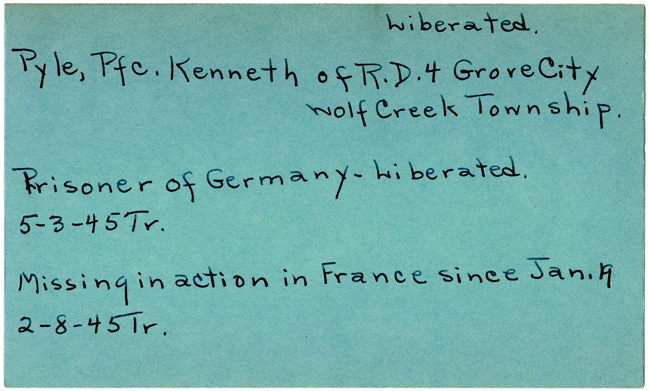 Liberated.
Pyle, Pfc. Kenneth of R.D.4 Grove City
Wolf Creek Township.
Prisoner of Germany - Liberated.
5-3-45 Tr.
Missing in action in France since Jan. 19
2-8-45 Tr.